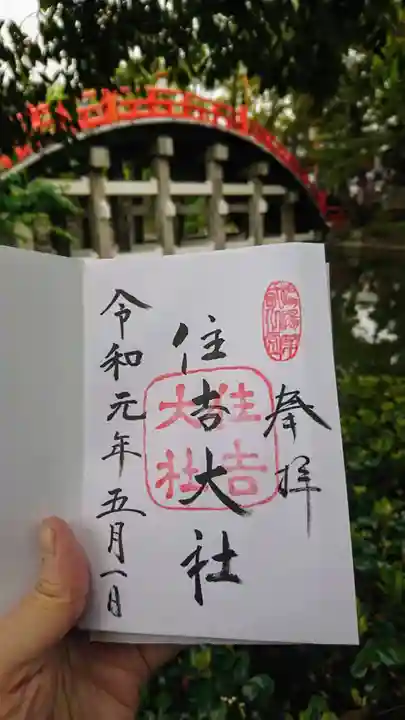 奉拝
住吉大社
住吉
大社
令和元年五月一日